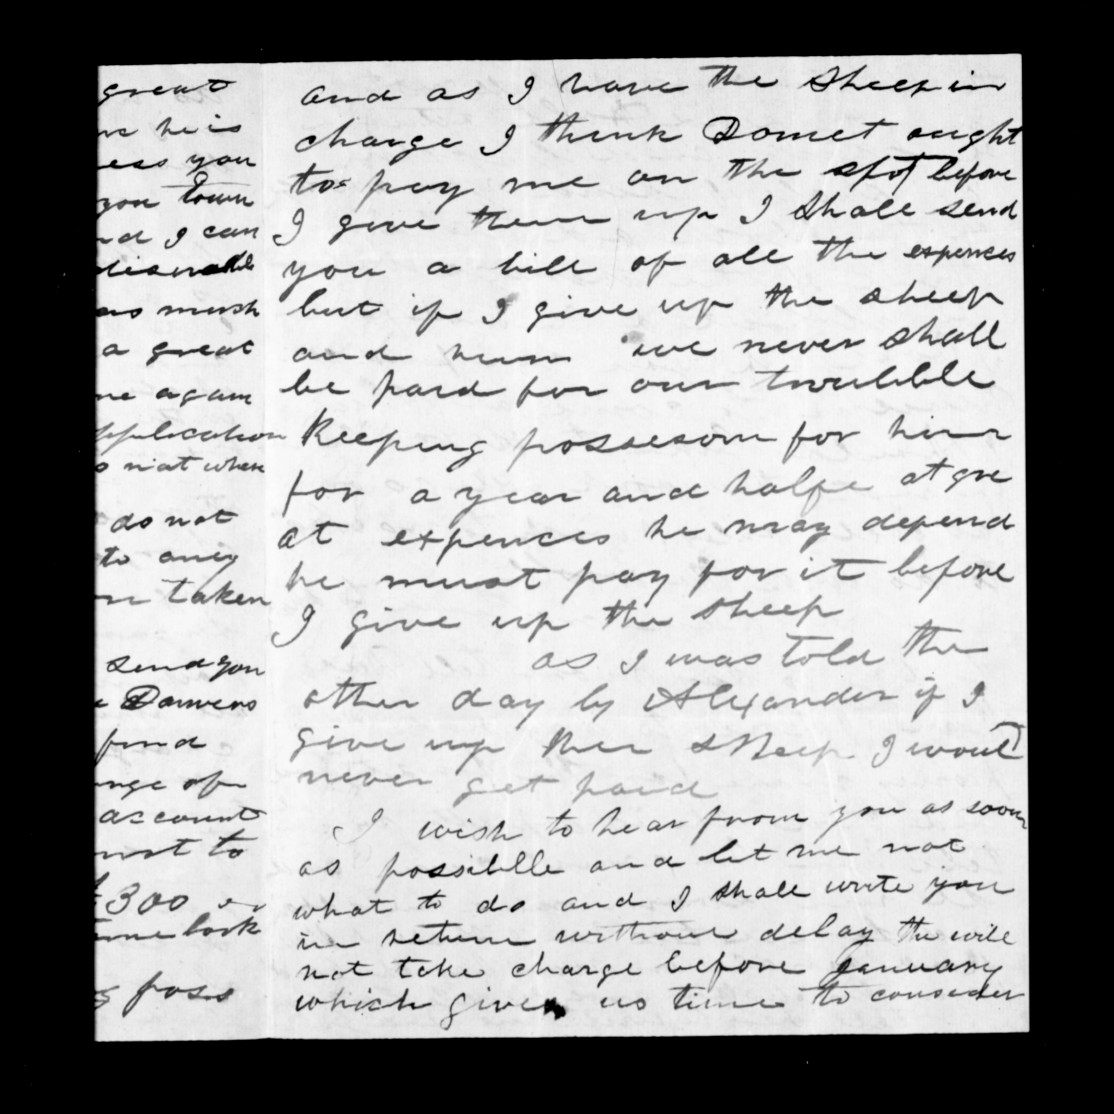 great
he is
ess you
you town
nd I can
as mush
a great
me again
pplication
o not when
do not
to aney
taken
send you
Danvers
find
nge of
account
not to
£300
time look
poss
and as I have the sheep in
charge I think Domet aught
to pay me on the spot before
I give them up I shall send
you a bill of all the expences
but if I give up the sheep
and run we never shall
be paid for our troubble
Keeping possesom for him
for a year and halfe at gre
at expences he may depend
he must pay for it before
I give up the sheep
as I was told the
other day by Alexander if I
give up ther sheep I would
never get paid
I wish to hear from you as soon
as possiblle and let me not
what to do and I shall write you
in return without delay the will
not take charge before January
which gives us time to consider